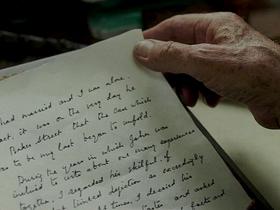 had married and I was alone.
it was on the very day he
Baker Street that the case which
to be my last began to unfold.
During the years in which John was
inclined to write about our many experiences
together, I regarded his skilful, if
limited depiction as exceedingly
At times I decried his
and asked